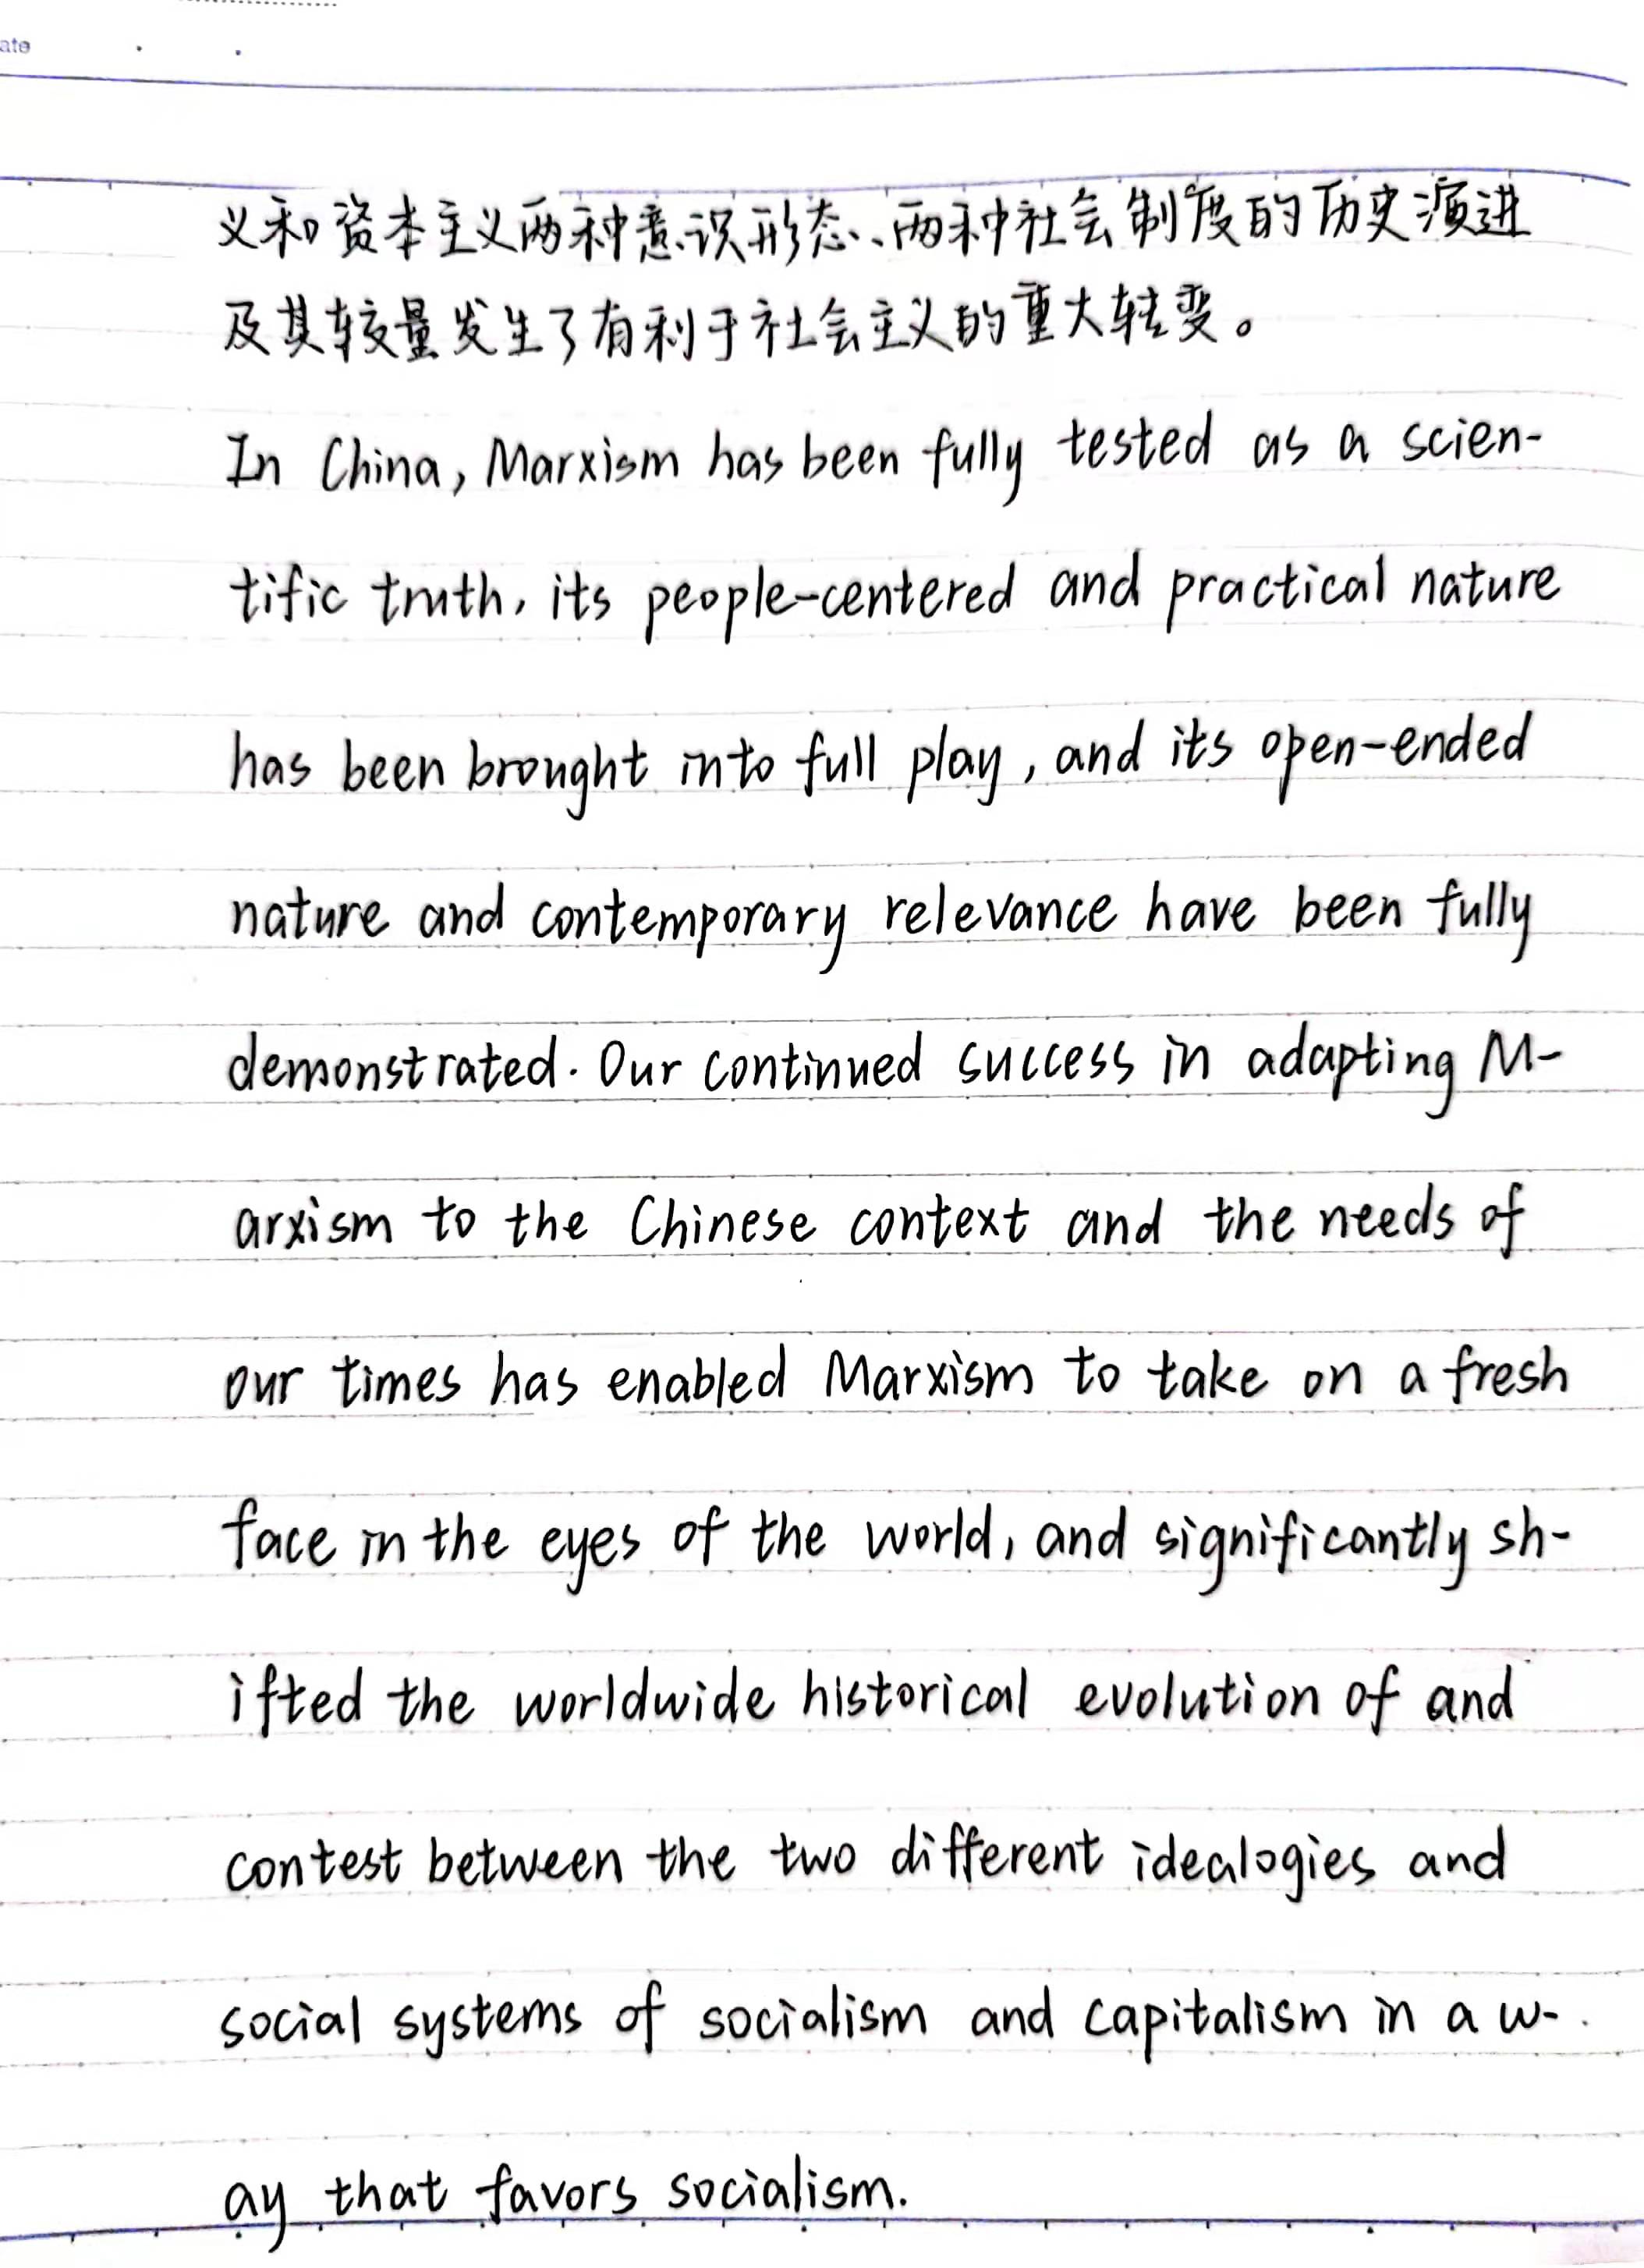 ate
义和资本主义两种意识形态、两种社会制度的历史演进
及其较量发生了有利于社会主义的重大转变。
In China, Marxism has been fully tested as a scien-
tific truth, its people-centered and practical nature
has been brought into full play, and its open-ended
nature and contemporary relevance have been fully
demonstrated. Our continued success in adapting M-
arxism to the Chinese context and the needs of
our times has enabled Marxism to take on a fresh
face in the eyes of the world, and significantly sh-
ifted the worldwide historical evolution of and
contest between the two different idealogies and
social systems of socialism and capitalism in a w-
ay that favors socialism.